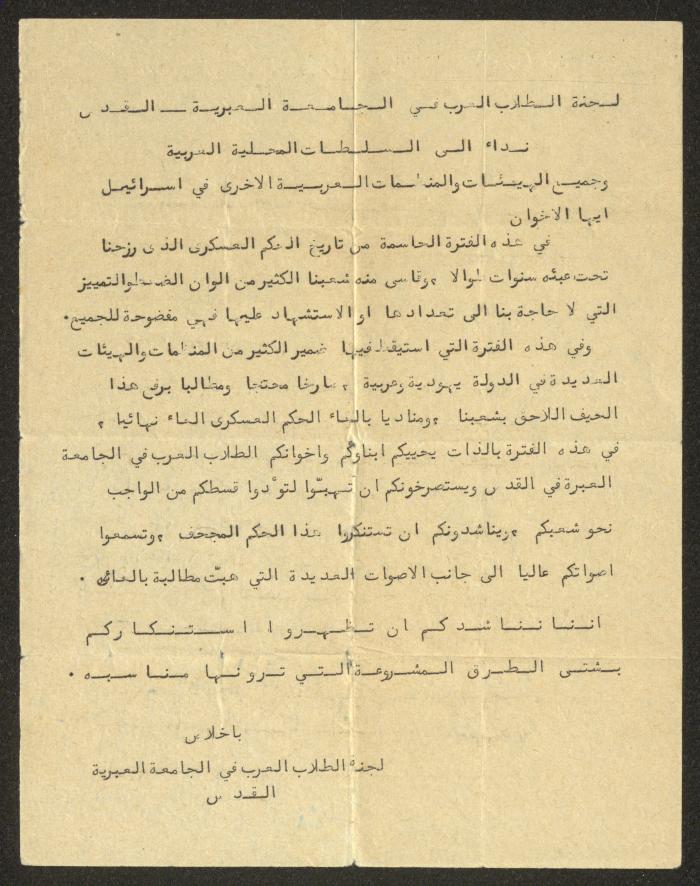 لجنة الطلاب العرب في الجامعة العبرية ــ القدس
نداء الى السلطات المحلية العربية
وجميع الهيئات والمنظمات العربية الاخرى في اسرائيل
ايها الاخوان
في هذه الفترة الحاسمة من تاريخ الحكم العسكرى الذى رزحنا
تحت عبئه سنوات طوالا ، وقاسى منه شعبنا الكثير من الوان الضغط والتمييز
التي لا حاجة بنا الى تعدادها او الاستشهاد عليها فهي مفضوحة للجميع.
وفي هذه الفترة التي استيقظ فيها ضمير الكثير من المنظمات والهيئات
العديدة في الدولة يهودية وعربية ، صارخا محتجا ومطالبا برفع هذا
الحيف اللاحق بشعبنا ، ومناديا بالغاء الحكم العسكرى الغاء نهائيا ،
في هذه الفترة بالذات يحييكم ابناوكم واخوانكم الطلاب العرب في الجامعة
العبرة في القدس ويستصرخونكم ان تهبّوا لتوٴدوا قسطكم من الواجب
نحو شعبكم ، ويناشدونكم ان تستنكروا هذا الحكم المجحف ، وتسمعوا
اصواتكم عاليا الى جانب الاصوات العديدة التي هبّت مطالبة بالغائه .
اننا نناشدكم ان تظهروا استنكاركم
بشتى الطرق المشروعة التي ترونها مناسبه .
باخلاص
لجنة الطلاب العرب في الجامعة العبرية
القدس